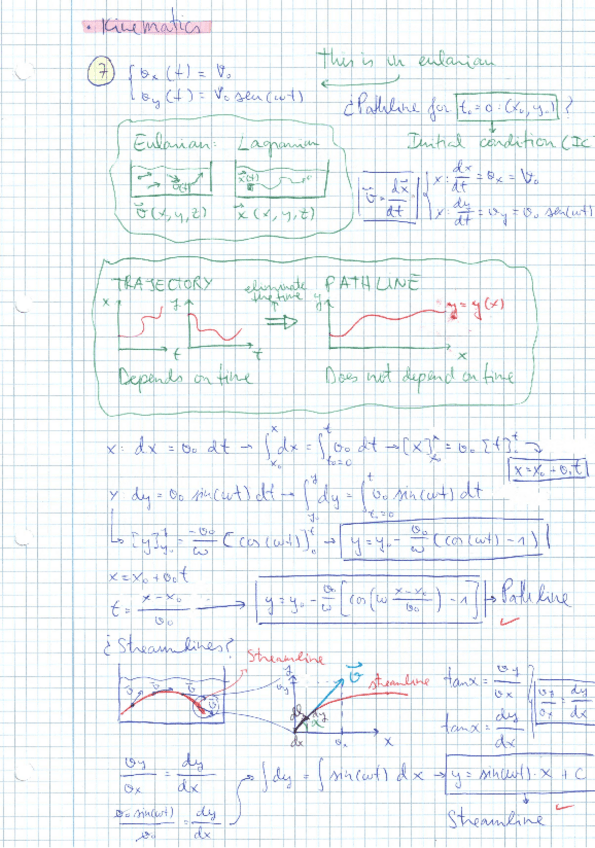 • Kinematics
7 { v_x (t) = V_0
v_y (t) = V_0 sen(ωt)
This is in eulerian
¿Pathline for t_0=0: (x_0, y_0) ?
Initial condition (IC
Eulerian: Lagranian
v⃗(x,y,z) x⃗(x,y,t)
v⃗ = dx⃗/dt { x: dx/dt = v_x = V_0
x: dy/dt = v_y = v_0 sen(ωt)
TRAJECTORY eliminate the time ⇒ PATHLINE
x y t t y x
y = y(x)
Depends on time Does not depend on time
x: dx = v_0 dt → ∫_{x_0}^{x} dx = ∫_{t_0=0}^{t} v_0 dt → [x]_{x_0}^{x} = v_0 [t]_0^t →
x = x_0 + v_0 t
y dy = v_0 sin(ωt) dt → ∫_{y_0}^{y} dy = ∫_{t_0=0}^{t} v_0 sin(ωt) dt
↳ [y]_{y_0}^{y} = -v_0/ω [cos(ωt)]_0^t → y = y_0 - v_0/ω (cos(ωt) - 1)
x = x_0 + v_0 t
t = (x - x_0)/v_0 → y = y_0 - v_0/ω [cos(ω (x - x_0)/v_0) - 1] → Pathline ✓
¿Streamlines?
Streamline
y v_y v⃗ streamline
dy α dx v_x x
tanα = v_y/v_x
tanα = dy/dx
v_y/v_x = dy/dx
v_y/v_x = dy/dx
v_0 sin(ωt)/v_0 = dy/dx
∫dy = ∫ sin(ωt) dx → y = sin(ωt)·x + C
Streamline ✓